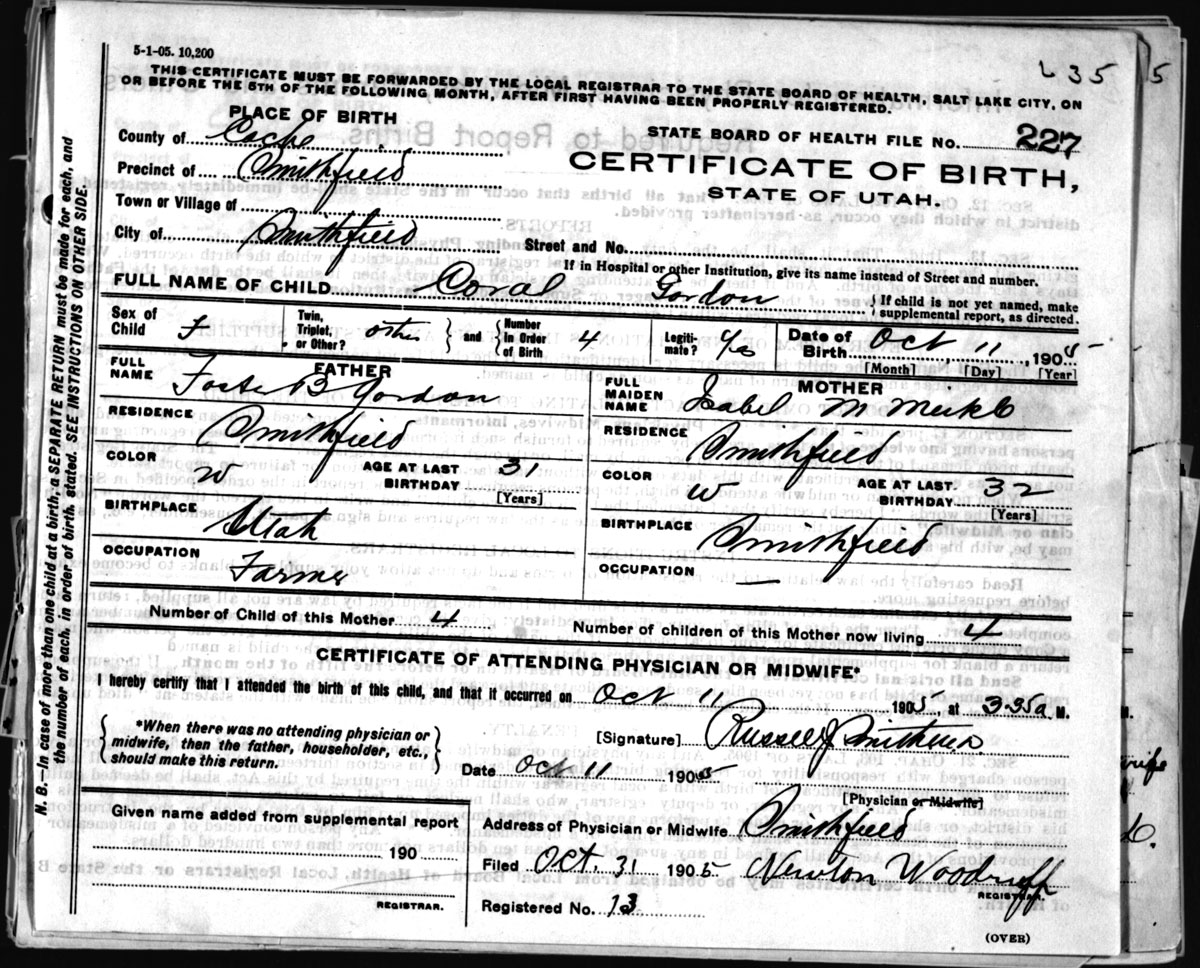 5-1-05. 10,200
35 5
THIS CERTIFICATE MUST BE FORWARDED BY THE LOCAL REGISTRAR TO THE STATE BOARD OF HEALTH, SALT LAKE CITY, ON
OR BEFORE THE 5TH OF THE FOLLOWING MONTH, AFTER FIRST HAVING BEEN PROPERLY REGISTERED.
PLACE OF BIRTH
County of Cache
Precinct of Smithfield
Town or Village of
City of Smithfield
STATE BOARD OF HEALTH FILE No. 227
CERTIFICATE OF BIRTH,
STATE OF UTAH.
Street and No.
If in Hospital or other Institution, give its name instead of Street and number.
FULL NAME OF CHILD Coral Gordon
{ If child is not yet named, make
supplemental report, as directed.
Sex of Child F
Twin, Triplet, or Other? other } and { Number In Order of Birth 4
Legiti-mate?
Date of Birth Oct 11, 1905
[Month] [Day] [Year]
FATHER
FULL NAME Foster B Gordon
RESIDENCE Smithfield
COLOR W AGE AT LAST BIRTHDAY 31
[Years]
BIRTHPLACE Utah
OCCUPATION Farmer
MOTHER
FULL MAIDEN NAME Isabel M Meikle
RESIDENCE Smithfield
COLOR W AGE AT LAST BIRTHDAY 32
[Years]
BIRTHPLACE Smithfield
OCCUPATION —
Number of Child of this Mother 4
Number of children of this Mother now living 4
CERTIFICATE OF ATTENDING PHYSICIAN OR MIDWIFE*
I hereby certify that I attended the birth of this child, and that it occurred on Oct 11 1905, at 3:35a M.
{ *When there was no attending physician or
midwife, then the father, householder, etc.,
should make this return. }
[Signature] Russell J Smith
Date Oct 11 1905
[Physician or Midwife]
Given name added from supplemental report
190
REGISTRAR.
Address of Physician or Midwife Smithfield
Filed Oct. 31 1905 Newton Woodruff
REGISTRAR.
Registered No. 13
(OVER)
N. B.—In case of more than one child at a birth, a SEPARATE RETURN must be made for each, and
the number of each, in order of birth, stated. SEE INSTRUCTIONS ON OTHER SIDE.